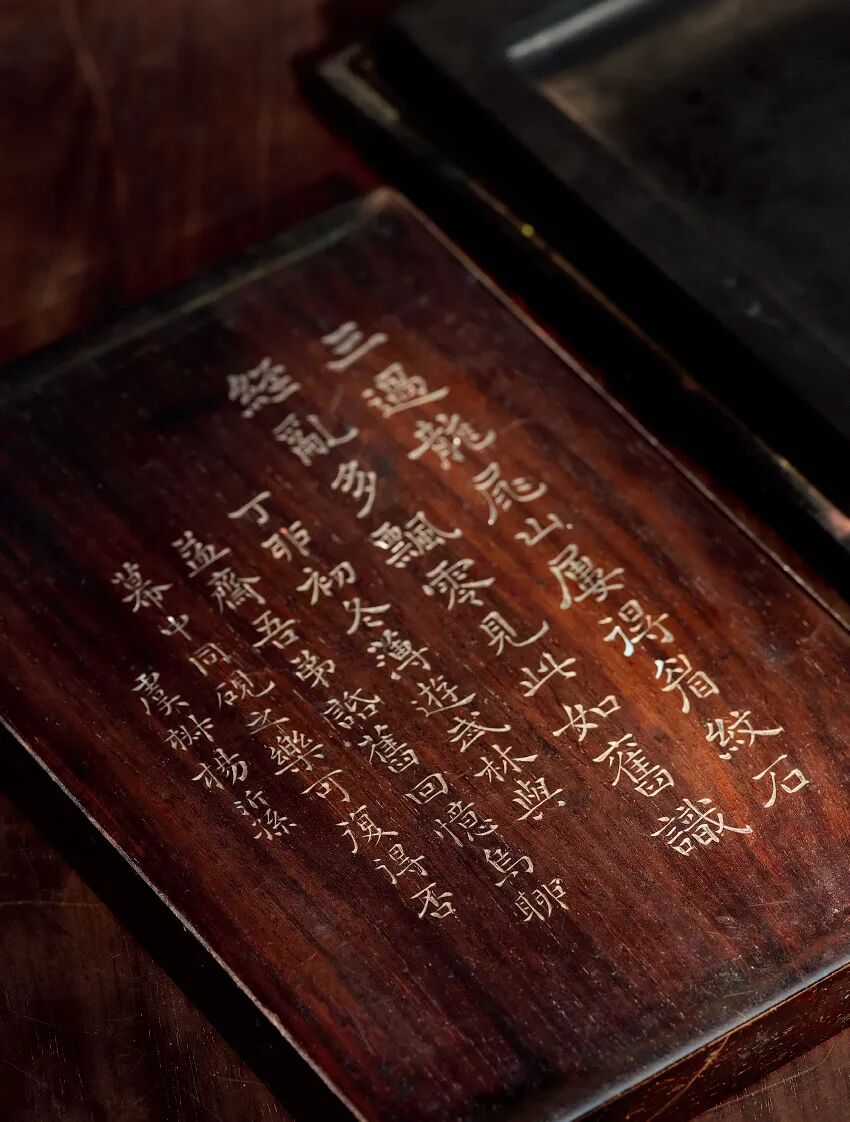 三過龍尾山屢得眉紋石
經亂多飄零見此如舊識
丁卯初冬薄遊武林與
益齋吾弟話舊回憶烏聊
幕中同硯之樂可復得否
虞 楊沂孫